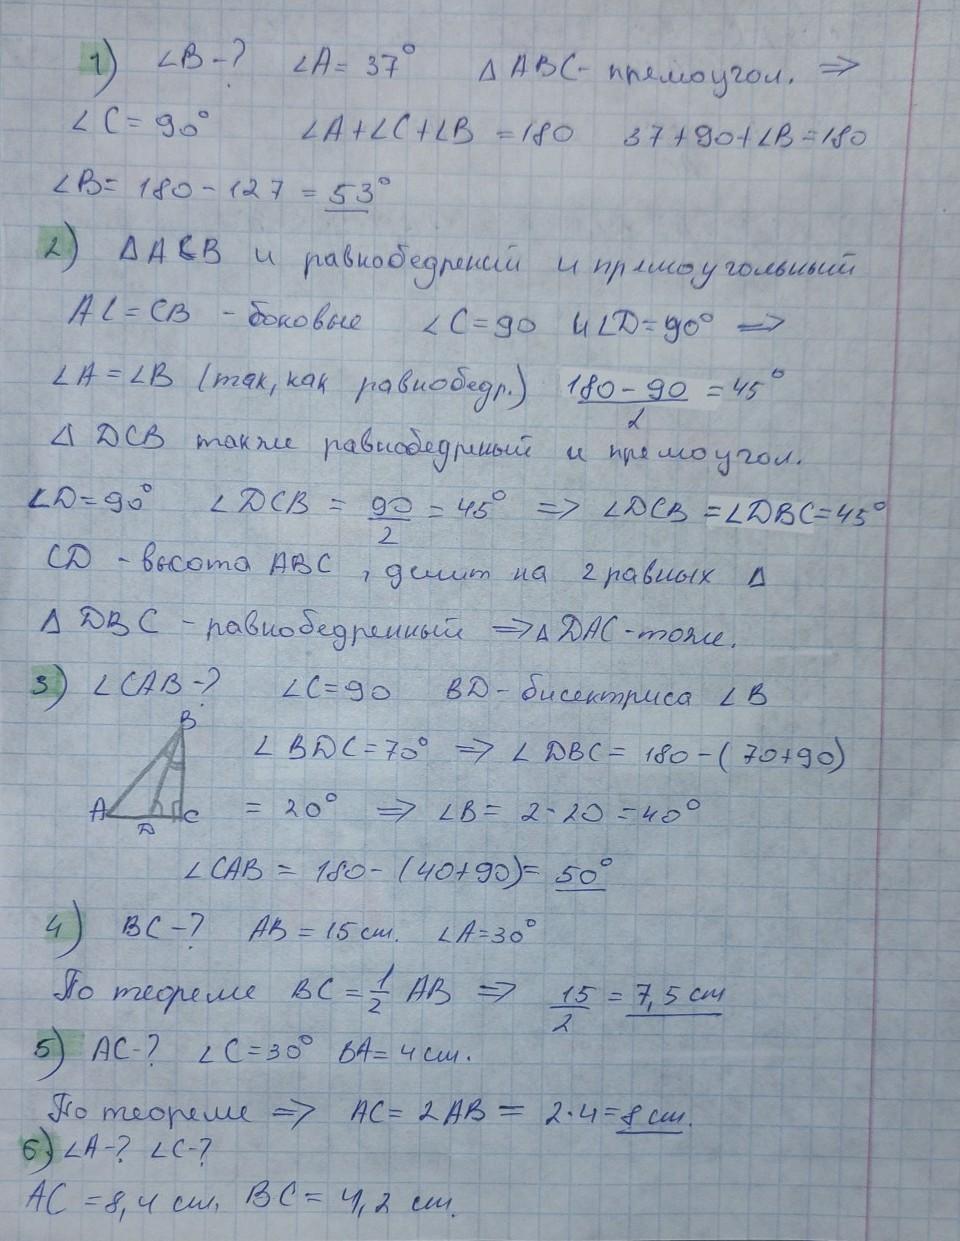 1) ∠B-? ∠A= 37° △ABC- прямоугол. ⇒
∠C= 90° ∠A+∠C+∠B =180 37+90+∠B=180
∠B= 180-127 = 53°
2) △ACB и равнобедрений и прямоугольный
AC=CB - боковые ∠C=90 и∠D=90° ⇒
∠A=∠B (так, как равнобедр.) (180-90)/2 =45°
△ DCB также равнобедрный и прямоугол.
∠D=90° ∠DCB = 90/2 =45° ⇒ ∠DCB =∠DBC=45°
CD - высота ABC , делит на 2 равных △
△ DBC - равнобедренный ⇒△DAC-тоже.
3) ∠CAB-? ∠C=90 BD- бисектриса ∠B
B
∠BDC=70° ⇒ ∠DBC= 180-(70+90)
A C = 20° ⇒ ∠B= 2·20 =40°
D
∠CAB = 180-(40+90)= 50°
4) BC-? AB=15см. ∠A=30°
По теореме BC=1/2 AB ⇒ 15/2 = 7,5 см
5) AC-? ∠C=30° BA= 4см.
По теореме ⇒ AC= 2AB = 2·4=8 см.
6) ∠A-? ∠C-?
AC =8,4 см, BC = 4,2 см.